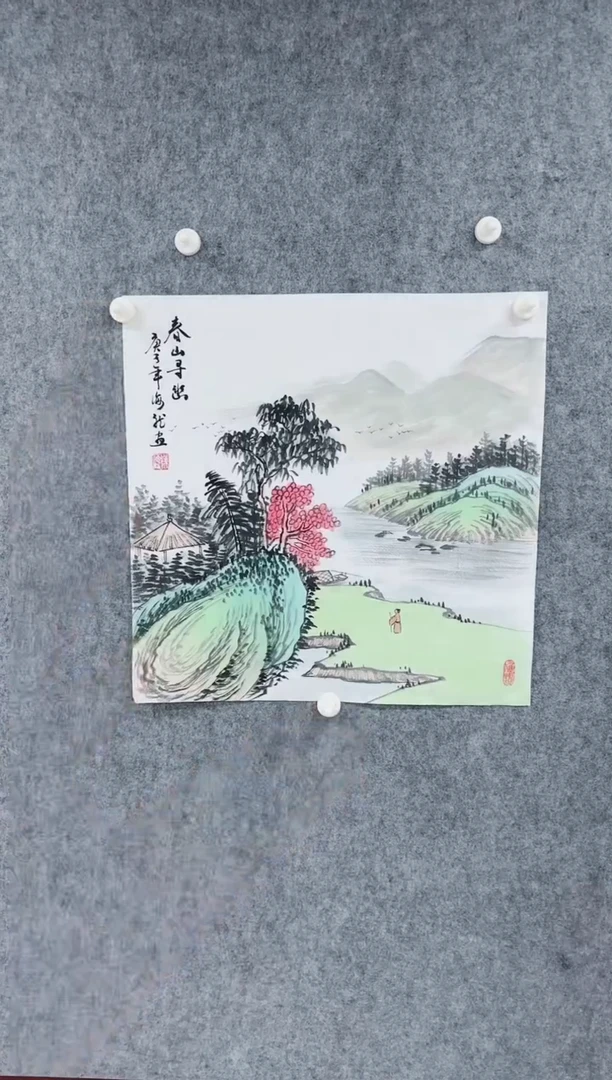 春山寻幽
庚子年海龙画